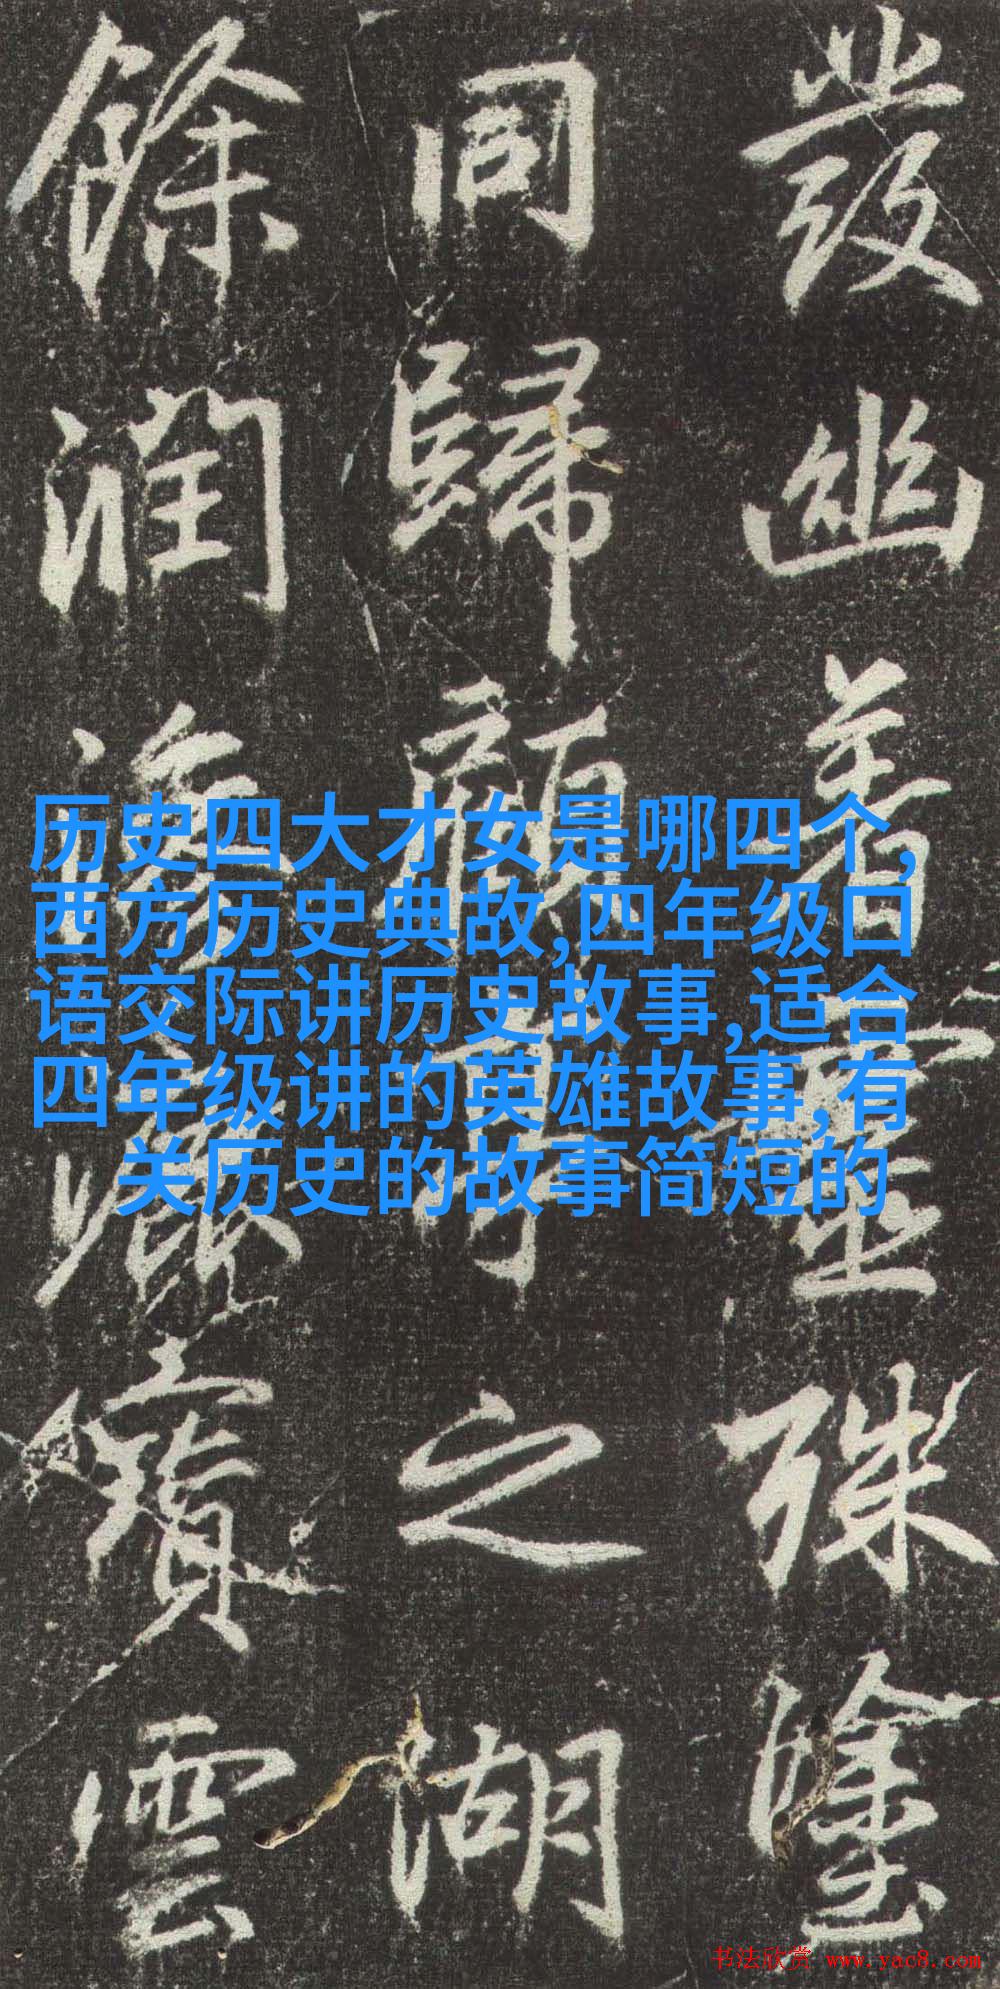 發幽著靈殊塗
同歸顧之湖
餘潤雲
历史四大才女是哪四个,
西方历史典故,四年级口
语交际讲历史故事,适合
四年级讲的英雄故事,有
关历史的故事简短的
书法欣赏 www.yac8.com